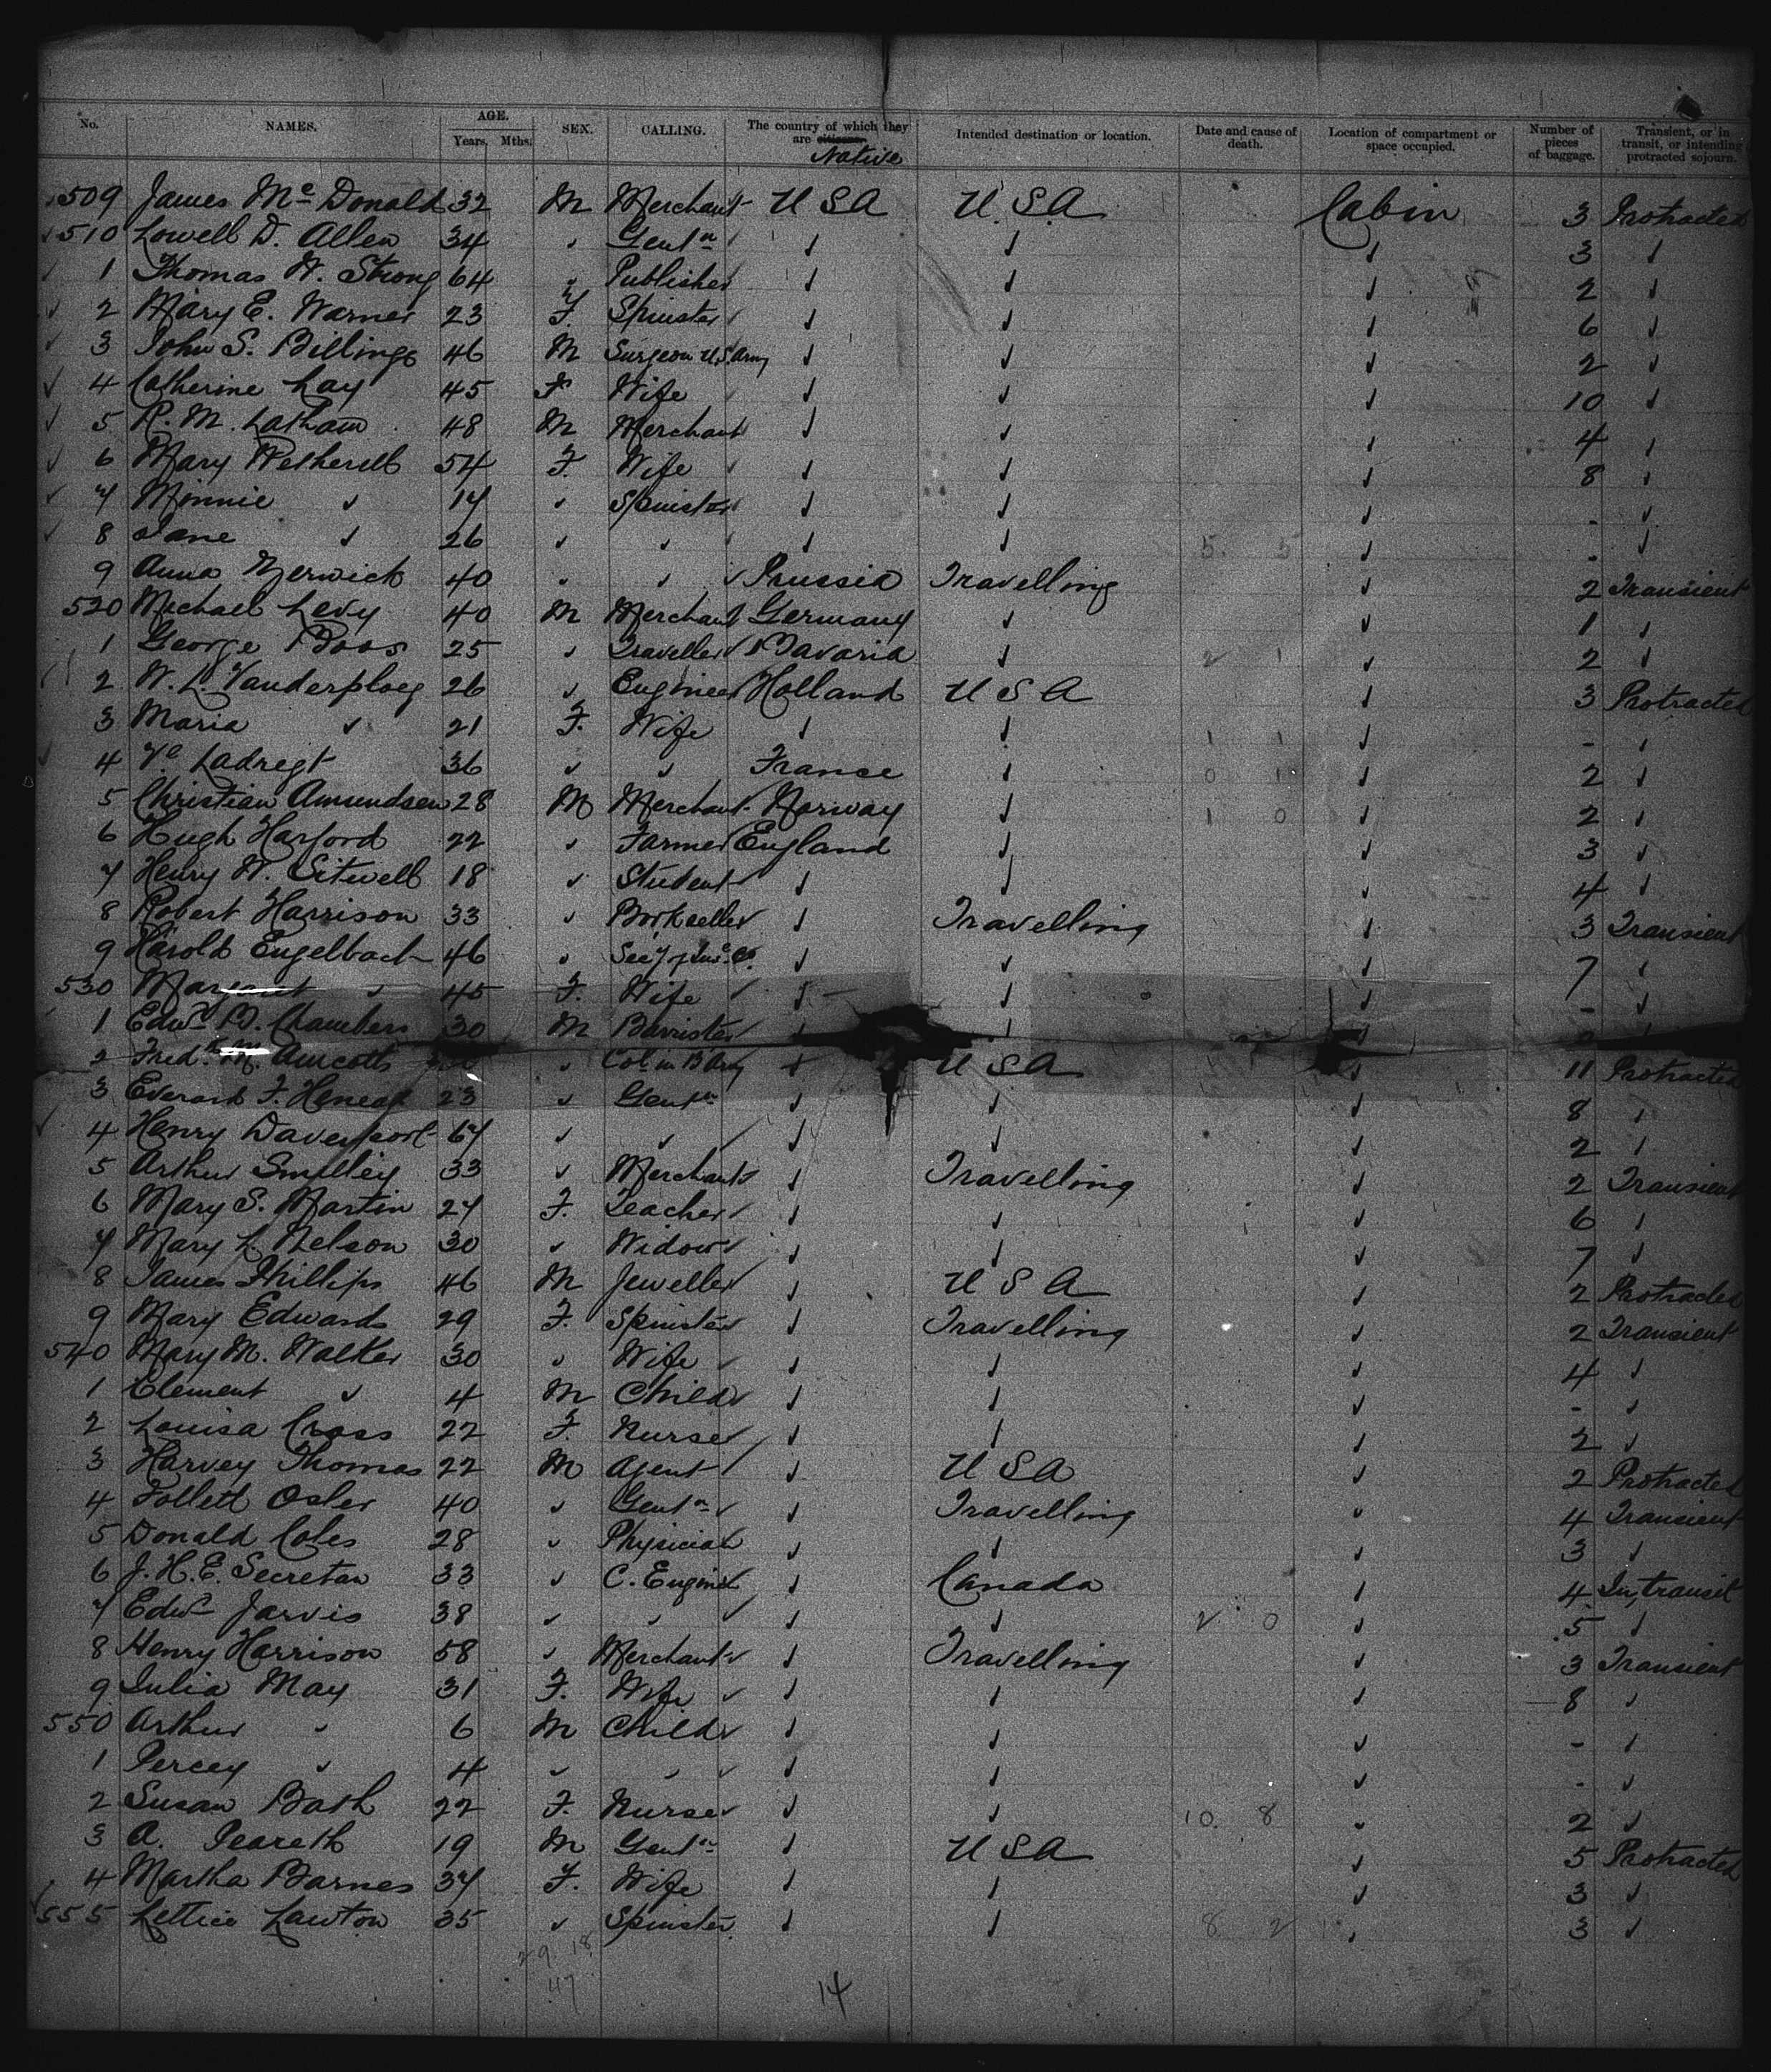 No. NAMES. AGE. Years. Mths. SEX. CALLING. The country of which they are citizens. Native Intended destination or location. Date and cause of death. Location of compartment or space occupied. Number of pieces of baggage. Transient, or in transit, or intending protracted sojourn.
509 James Mc Donald 32 M Merchant USA U.S.A Cabin 3 Protracted
510 Lowell D. Allen 34 ✓ Gentn ✓ ✓ ✓ 3 ✓
1 Thomas W. Strong 64 ✓ Publisher ✓ ✓ ✓ 2 ✓
2 Mary E. Warner 23 F. Spinster ✓ ✓ ✓ 6 ✓
3 John S. Billings 46 M Surgeon U.S. Army ✓ ✓ ✓ 2 ✓
4 Catherine Lay 45 F Wife ✓ ✓ ✓ 10 ✓
5 R. M. Latham 48 M Merchant ✓ ✓ ✓ 4 ✓
6 Mary Wetherell 54 F. Wife ✓ ✓ ✓ 8 ✓
7 Minnie ✓ 17 ✓ Spinster ✓ ✓ ✓ - ✓
8 Jane ✓ 26 ✓ ✓ ✓ ✓ 5. 5 ✓ - ✓
9 Anna 40 ✓ ✓ Prussia Travelling ✓ 2 Transient
520 Michael Levy 40 M Merchant Germany ✓ ✓ 1 ✓
1 George Boos 25 ✓ Traveller Bavaria ✓ 2 1 ✓ 2 ✓
2 W. L. Vanderploeg 26 ✓ Engineer Holland U S A ✓ 3 Protracted
3 Maria ✓ 21 F. Wife ✓ ✓ 1 1 ✓ - ✓
4 Ve Ladregt 36 ✓ ✓ France ✓ 0 1 ✓ 2 ✓
5 Christian Amundsen 28 M Merchant Norway ✓ 1 0 ✓ 2 ✓
6 Hugh Harford 22 ✓ Farmer England ✓ ✓ 3 ✓
7 Henry W. Sitwell 18 ✓ Student ✓ ✓ ✓ 4 ✓
8 Robert Harrison 33 ✓ Bookseller ✓ Travelling ✓ 3 Transient
9 Harold Engelbach 46 ✓ Secy of Insce Co. ✓ ✓ ✓ 7 ✓
530 Margaret ✓ 45 F. Wife ✓ ✓ ✓ - ✓
1 Edwd B. Chambers 30 M Barrister ✓ ✓ ✓
2 Fredk M. Amcotts ✓ Col in B Army ✓ U S A ✓ 11 Protracted
3 Everard F. Heneage 23 ✓ Gentn ✓ ✓ ✓ 8 ✓
4 Henry Davenport 67 ✓ ✓ ✓ ✓ ✓ 2 ✓
5 Arthur Smilley 33 ✓ Merchant ✓ Travelling ✓ 2 Transient
6 Mary S. Martin 27 F. Teacher ✓ ✓ ✓ 6 ✓
7 Mary L. Nelson 30 ✓ Widow ✓ ✓ ✓ 7 ✓
8 James Phillips 46 M Jeweller ✓ U S A ✓ 2 Protracted
9 Mary Edwards 29 F. Spinster ✓ Travelling ✓ 2 Transient
540 Mary M. Walker 30 ✓ Wife ✓ ✓ ✓ 4 ✓
1 Clement ✓ 4 M Child ✓ ✓ ✓ - ✓
2 Louisa Cross 22 F. Nurse ✓ ✓ ✓ 2 ✓
3 Harvey Thomas 22 M Agent ✓ U S A ✓ 2 Protracted
4 Follett Osler 40 ✓ Gentn ✓ Travelling ✓ 4 Transient
5 Donald Coles 28 ✓ Physician ✓ ✓ ✓ 3 ✓
6 J. H. E. Secretan 33 ✓ C. Engineer ✓ Canada ✓ 4 In transit
7 Edwd Jarvis 38 ✓ ✓ ✓ ✓ 2 0 ✓ 5 ✓
8 Henry Harrison 58 ✓ Merchant ✓ Travelling ✓ 3 Transient
9 Julia May 31 F. Wife ✓ ✓ ✓ 8 ✓
550 Arthur ✓ 6 M Child ✓ ✓ ✓ - ✓
1 Percey ✓ 4 ✓ ✓ ✓ ✓ ✓ - ✓
2 Susan Bath 22 F. Nurse ✓ ✓ 10. 8 ✓ 2 ✓
3 A. Peareth 19 M Gentn ✓ U S A ✓ 5 Protracted
4 Martha Barnes 37 F. Wife ✓ ✓ ✓ 3 ✓
555 Lettice Lawton 35 ✓ Spinster ✓ ✓ 8 2 ✓ 3 ✓
29. 18
47 14